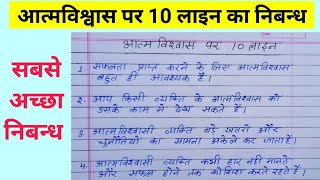 आत्मविश्वास पर 10 लाइन का निबन्ध
सबसे
अच्छा
निबन्ध
आत्म विश्वास पर 10 लाइन
1. सफलता प्राप्त करने के लिए आत्मविश्वास
बहुत ही आवश्यक है।
2. आप किसी व्यक्ति के आत्मविश्वास को
उसके काम में देख सकते हैं।
3. आत्मविश्वासी व्यक्ति बड़े खतरों और
चुनौतियों का सामना अकेले कर जाता है।
4. आत्मविश्वासी व्यक्ति कभी हार नहीं मानते
और सफल होने तक कोशिश करते रहते हैं।